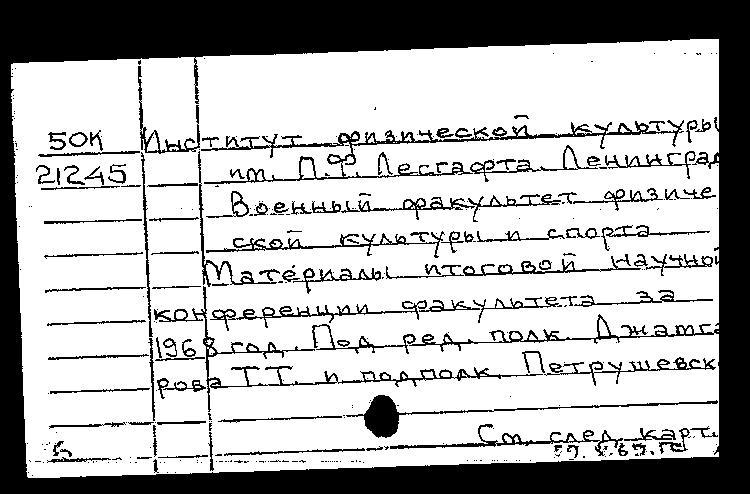 50К Институт физической культуры
21245 им. П.Ф. Лесгафта. Ленинград
Военный факультет физиче
ской культуры и спорта
Материалы итоговой научной
конференции факультета за
1968 год. Под ред. полк. Джамга
рова Т.Т. и подполк. Петрушевск
См. след. карт.